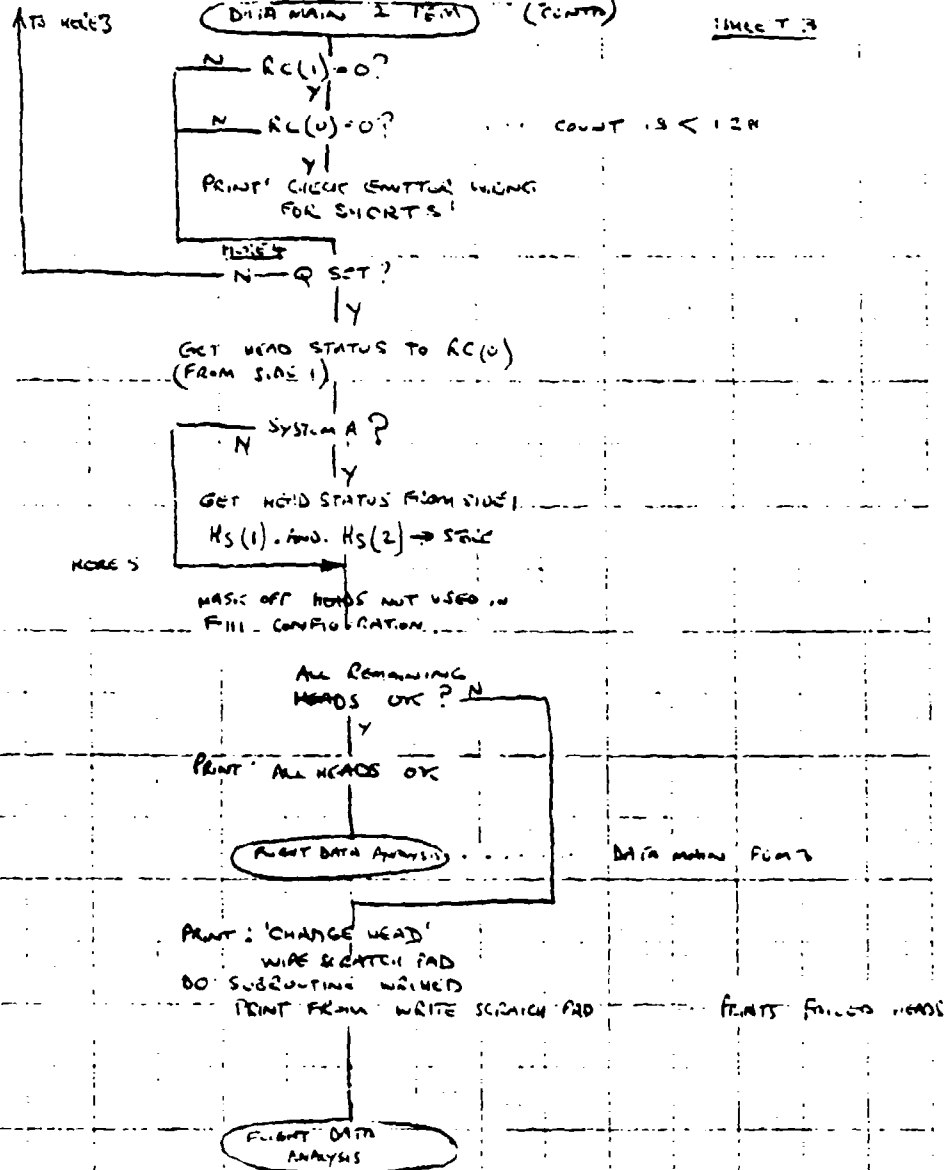 TO HERE3
DATA MAIN 2 (CONTD)
SHEET 3
N RC(1)=0?
Y
N RC(0)=0? COUNT IS < 128
Y
PRINT 'CHECK EMITTER WIRING
FOR SHORTS'
HERE4
N Q SET?
Y
GET HEAD STATUS TO RC(0)
(FROM SIDE 1)
N SYSTEM A?
Y
GET HEAD STATUS FROM SIDE 1
HS(1).AND.HS(2) → STORE
HERE 5
MASK OFF HEADS NOT USED IN
F111 CONFIGURATION.
ALL REMAINING
HEADS OK? N
Y
PRINT 'ALL HEADS OK
FLIGHT DATA ANALYSIS DATA MAIN
PRINT : 'CHANGE HEAD'
WIPE SCRATCH PAD
DO SUBROUTINE
PRINT FROM WRITE SCRATCH PAD PRINTS FAILED HEADS
FLIGHT DATA
ANALYSIS